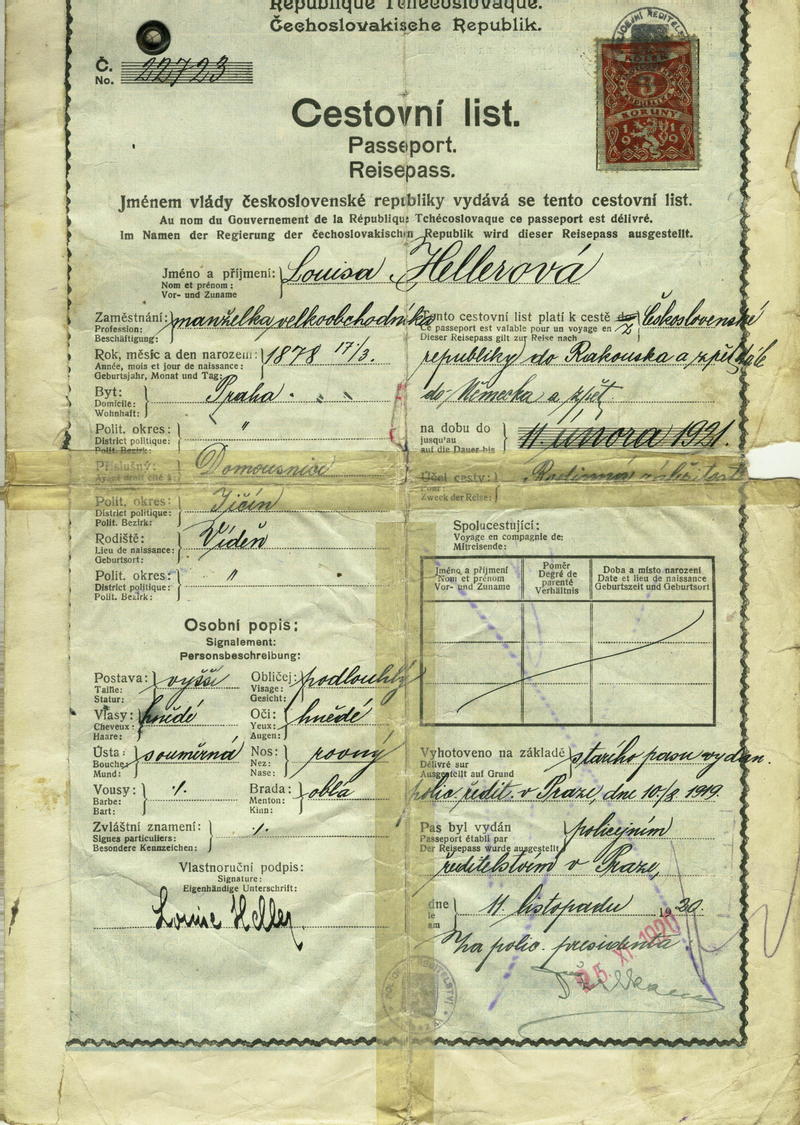 République Tchécoslovaque.
Čechoslovakische Republik.
Č.
No. 22723
POLICEJNÍ ŘEDITELS
KOLEK
3
KORUNY
1919
Cestovní list.
Passeport.
Reisepass.
Jménem vlády československé republiky vydává se tento cestovní list.
Au nom du Gouvernement de la République Tchécoslovaque ce passeport est délivré.
Im Namen der Regierung der čechoslovakischen Republik wird dieser Reisepass ausgestellt.
Jméno a příjmení: Louisa Hellerová
Nom et prénom:
Vor- und Zuname
Zaměstnání: manželka velkoobchodníka
Profession:
Beschäftigung:
Rok, měsíc a den narození: 1878 17/3.
Année, mois et jour de naissance:
Geburtsjahr, Monat und Tag:
Byt: Praha
Domicile:
Wohnhaft:
Polit. okres: "
District politique:
Polit. Bezirk:
Příslušný: Domousnice
Polit. okres: Jičín
District politique:
Polit. Bezirk:
Rodiště: Vídeň
Lieu de naissance:
Geburtsort:
Polit. okres: "
District politique:
Polit. Bezirk:
Osobní popis:
Signalement:
Personsbeschreibung:
Postava: vyšší
Taille:
Statur:
Obličej: podlouhlý
Visage:
Gesicht:
Vlasy: hnědé
Cheveux:
Haare:
Oči: hnědé
Yeux:
Augen:
Ústa: souměrná
Bouche:
Mund:
Nos: rovný
Nez:
Nase:
Vousy: ⁒
Barbe:
Bart:
Brada: oblá
Menton:
Kinn:
Zvláštní znamení: ⁒
Signes particuliers:
Besondere Kennzeichen:
Vlastnoruční podpis:
Signature:
Eigenhändige Unterschrift:
Louise Heller
Tento cestovní list platí k cestě z Československé
Ce passeport est valable pour un voyage en
Dieser Reisepass gilt zur Reise nach
republiky do Rakouska a zpět, dále
do Německa a zpět.
na dobu do 11 února 1921.
jusqu'au
auf die Dauer bis
Účel cesty: Rodinná záležitost
Zweck der Reise:
Spolucestující:
Voyage en compagnie de:
Mitreisende:
Jméno a příjmení
Nom et prénom
Vor- und Zuname
Poměr
Degré de
parenté
Verhältnis
Doba a místo narození
Date et lieu de naissance
Geburtszeit und Geburtsort
Vyhotoveno na základě starího pasu vydan.
Délivré sur
Ausgestellt auf Grund
polic. ředit. v Praze, dne 10/8. 1919.
Pas byl vydán policejním
Passeport établi par
Der Reisepass wurde ausgestellt
ředitelstvím v Praze,
dne 11 listopadu 1920.
le
am
Za polic. presidenta:
25. XI. 1920